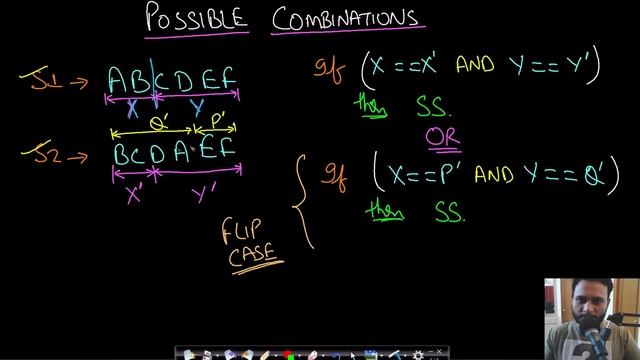 POSSIBLE COMBINATIONS
S1 → ABCDEF
X Y
Q' P'
S2 → BCDAEF
X' Y'
If (X==X' AND Y==Y')
then SS.
OR
If (X==P' AND Y==Q')
then SS.
FLIP
CASE